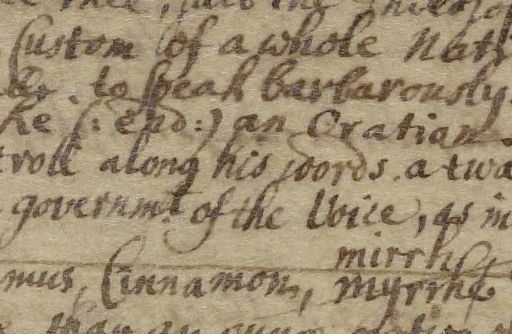 Custom of a whole Nat
to speak barbarously
ke (: epō:) an Oration
troll along his words. a twa
governmt. of the Voice, as in
mirrh
mus, Cinnamon, myrrhe